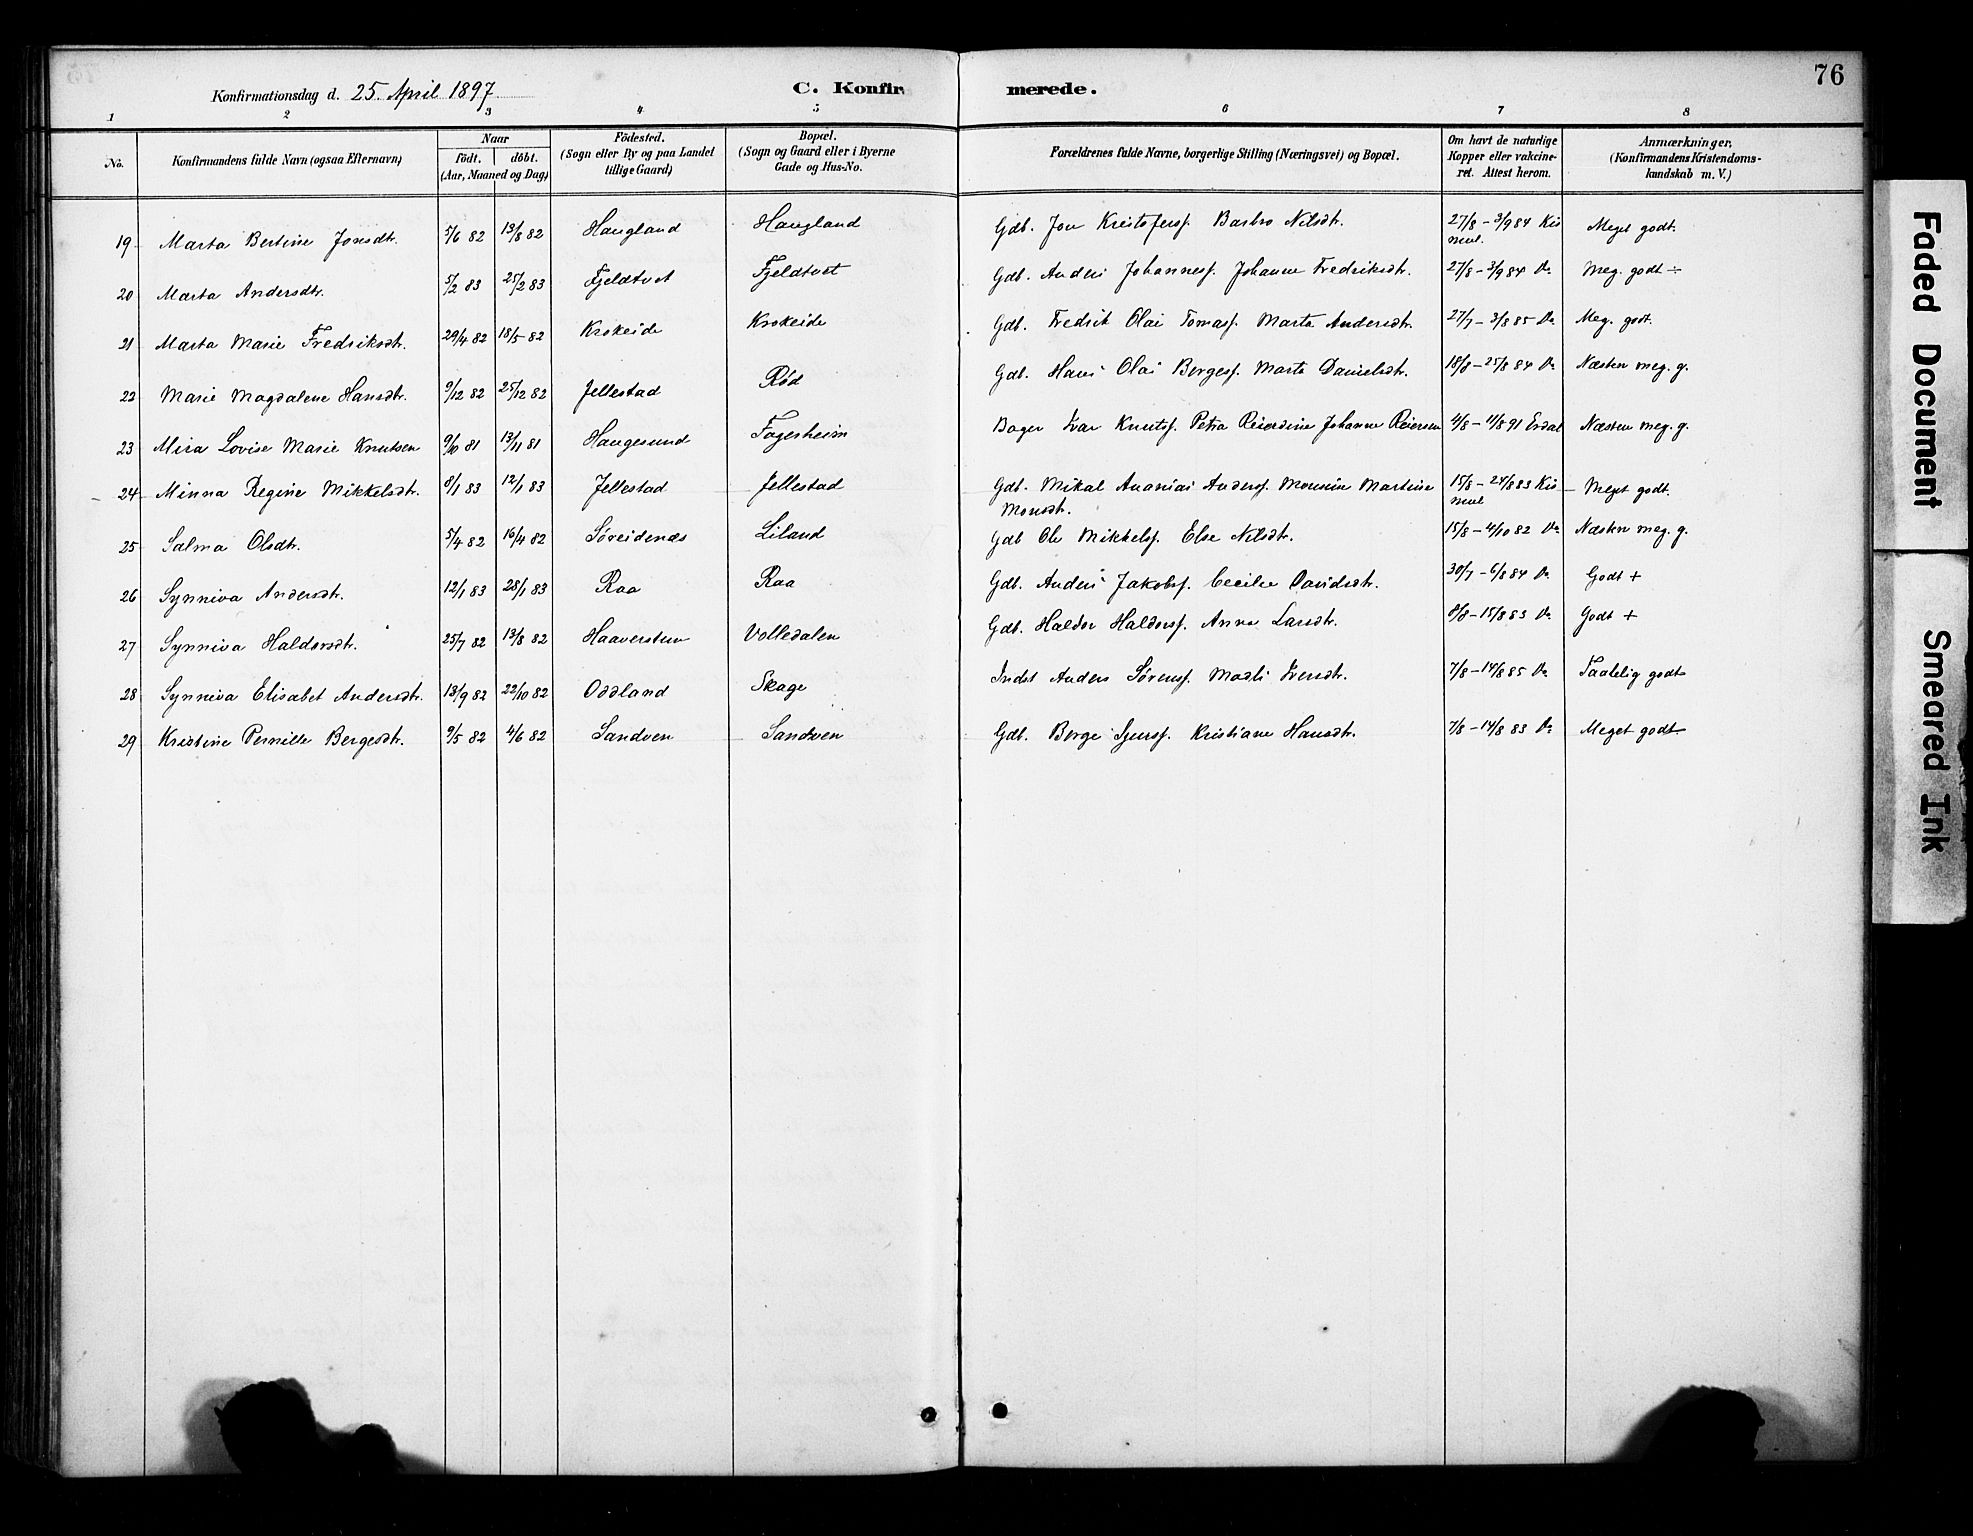 76
Konfirmationsdag d. 25. April 1897
C. Konfirmerede.
1 2 3 4 5 6 7 8
No. Konfirmandens fulde Navn (ogsaa Efternavn) Naar födt. döbt. (Aar, Maaned og Dag) Födested. (Sogn eller By og paa Landet tillige Gaard) Bopæl. (Sogn og Gaard eller i Byerne Gade og Hus-No. Forældrenes fulde Navne, borgerlige Stilling (Næringsvei) og Bopæl. Om havt de naturlige Kopper eller vakcineret. Attest herom. Anmærkninger, (Konfirmandens Kristendomskundskab m. V.)
19 Marta Bertine Jonsdtr. 5/6 82 13/8 82 Haugland Haugland Gdb. Jon Kristofersf. Barbro Nilsdtr. 27/8 - 3/9 84 Kismul. Meget godt.
20 Marta Andersdtr. 5/2 83 25/2 83 Fjeldtvet Fjeldtvet Gdb. Anders Johannesf. Johanne Fredriksdtr. 27/8 - 3/9 84 Do Meg. godt ÷
21 Marta Marie Fredriksdtr. 29/4 82 18/5 82 Krokeide Krokeide Gdb. Fredrik Olai Tomasf. Marta Andersdtr. 27/7 - 3/8 85 Do Meg. godt.
22 Marie Magdalene Hansdtr. 9/12 82 25/12 82 Jellestad Rød Gdb. Hans Olai Bergesf. Marta Danielsdtr. 18/8 - 25/8 84 Do Næsten meg. g.
23 Mira Lovise Marie Knutsen 9/10 81 13/11 81 Haugesund Fagerheim Bager Ivar Knutsf. Petra Reierdine Johanne Reiersen 4/8 - 11/8 91 Erdal Næsten meg. g.
24 Minna Regine Mikkelsdtr. 8/1 83 12/1 83 Jellestad Jellestad Gdb. Mikal Ananias Andersf. Monsine Martine Monsdtr. 15/8 - 24/8 83 Kismul Meget godt.
25 Salma Olsdtr. 5/4 82 16/4 82 Søreidenæs Liland Gdb Ole Mikkelsf. Else Nilsdtr. 15/8 - 4/10 82 Do Næsten meg. g.
26 Synniva Andersdtr. 12/1 83 28/1 83 Raa Raa Gdb. Anders Jakobsf. Cecilie Davidsdtr. 30/7 - 6/8 84 Do Godt +
27 Synniva Haldorsdtr. 25/7 82 13/8 82 Haaverstun Volledalen Gdb. Haldor Haldorsf. Anna Larsdtr. 8/8 - 15/8 83 Do Godt +
28 Synniva Elisabet Andersdtr. 13/9 82 22/10 82 Oddland Skage Indst Anders Sørensf. Madli Iversdtr. 7/8 - 14/8 85 Do Taalelig godt
29 Kristine Pernille Bergesdtr. 9/5 82 4/6 82 Sandven Sandven Gdb. Berge Sjursf. Kristiane Hansdtr. 7/8 - 14/8 83 Do Meget godt
Faded Document
Smeared Ink